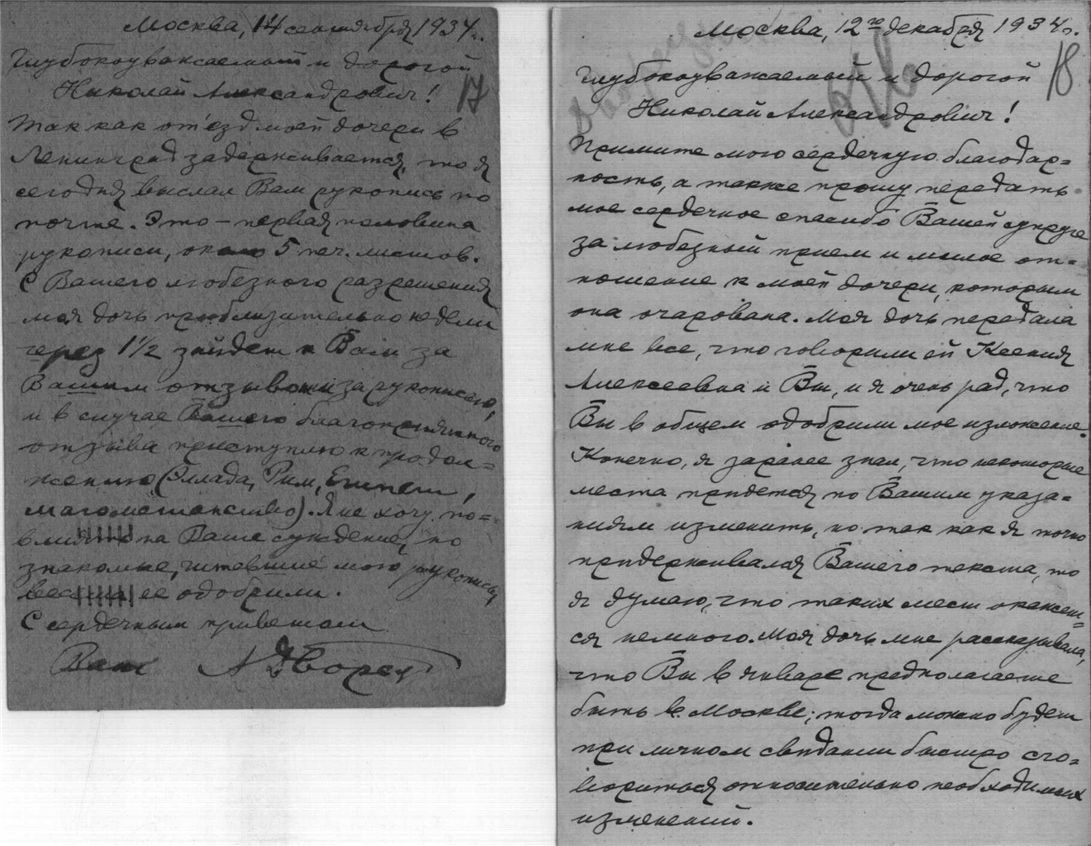 Москва, 14 сентября 1934 г.
17
Глубокоуважаемый и дорогой
Николай Александрович!
Так как от'езд моей дочери в
Ленинград задерживается, то я
сегодня выслал Вам рукопись по
почте. Это – первая половина
рукописи, около 5 печ. листов.
С Вашего любезного разрешения
моя дочь приблизительно недели
через 1½ зайдет к Вам за
Вашим отзывом и за рукописью,
и в случае Вашего благоприятного
отзыва приступлю к продол=
жению (Эллада, Рим, Египет,
магометанство). Я не хочу по=
влиять на Ваше суждение, но
знакомые, читавшие мою рукопись,
весьма ее одобрили.
С сердечным приветом
Ваш А Дворец
Москва, 12го декабря 1934 г.
18
Глубокоуважаемый и дорогой
Николай Александрович!
Примите мою сердечную благодар=
ность, а также прошу передать
мое сердечное спасибо Вашей супруге
за любезный прием и милое от=
ношение к моей дочери, которым
она очарована. Моя дочь передала
мне все, что говорили ей Ксения
Алексеевна и Вы, и я очень рад, что
Вы в общем одобрили мое изложение.
Конечно, я заранее знал, что некоторые
места придется по Вашим указа=
ниям изменить, но так как я точно
придерживался Вашего текста, то
я думаю, что таких мест окажет=
ся немного. Моя дочь мне рассказывала,
что Вы в январе предполагаете
быть в Москве; тогда можно будет
при личном свидании быстро сго=
вориться относительно необходимых
изменений.